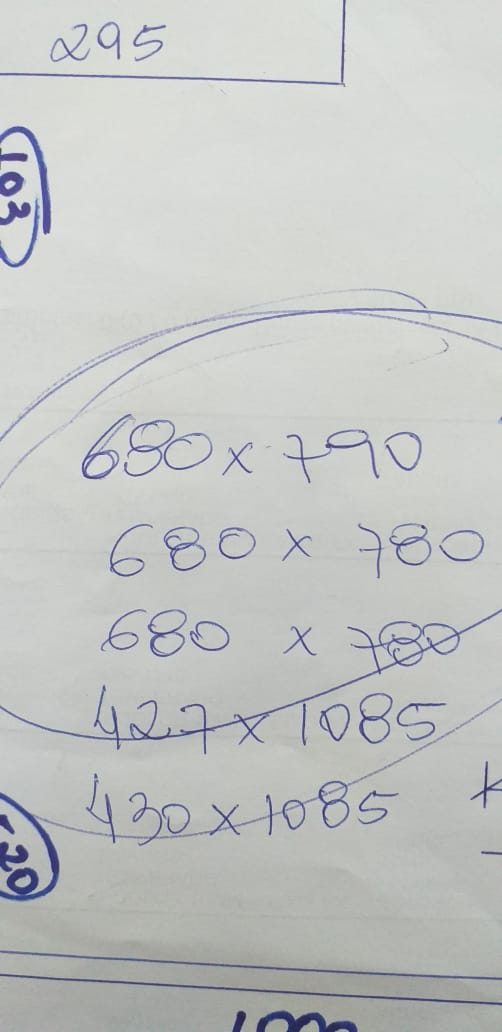 295
103
680 x 790
680 x 780
680 x 780
427 x 1085
430 x 1085
20